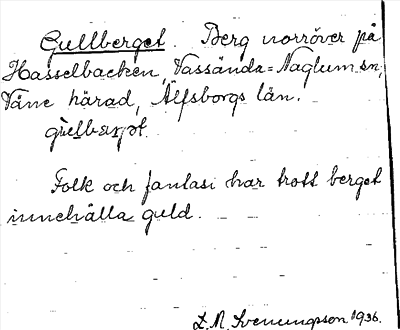 Gullberget. Berg norröver på
Hasselbacken, Vassända=Naglum sn,
Väne härad, Älfsborgs län.
Folk och fantasi har trott berget
innehålla guld.
L. M. Svenungsson 1936.